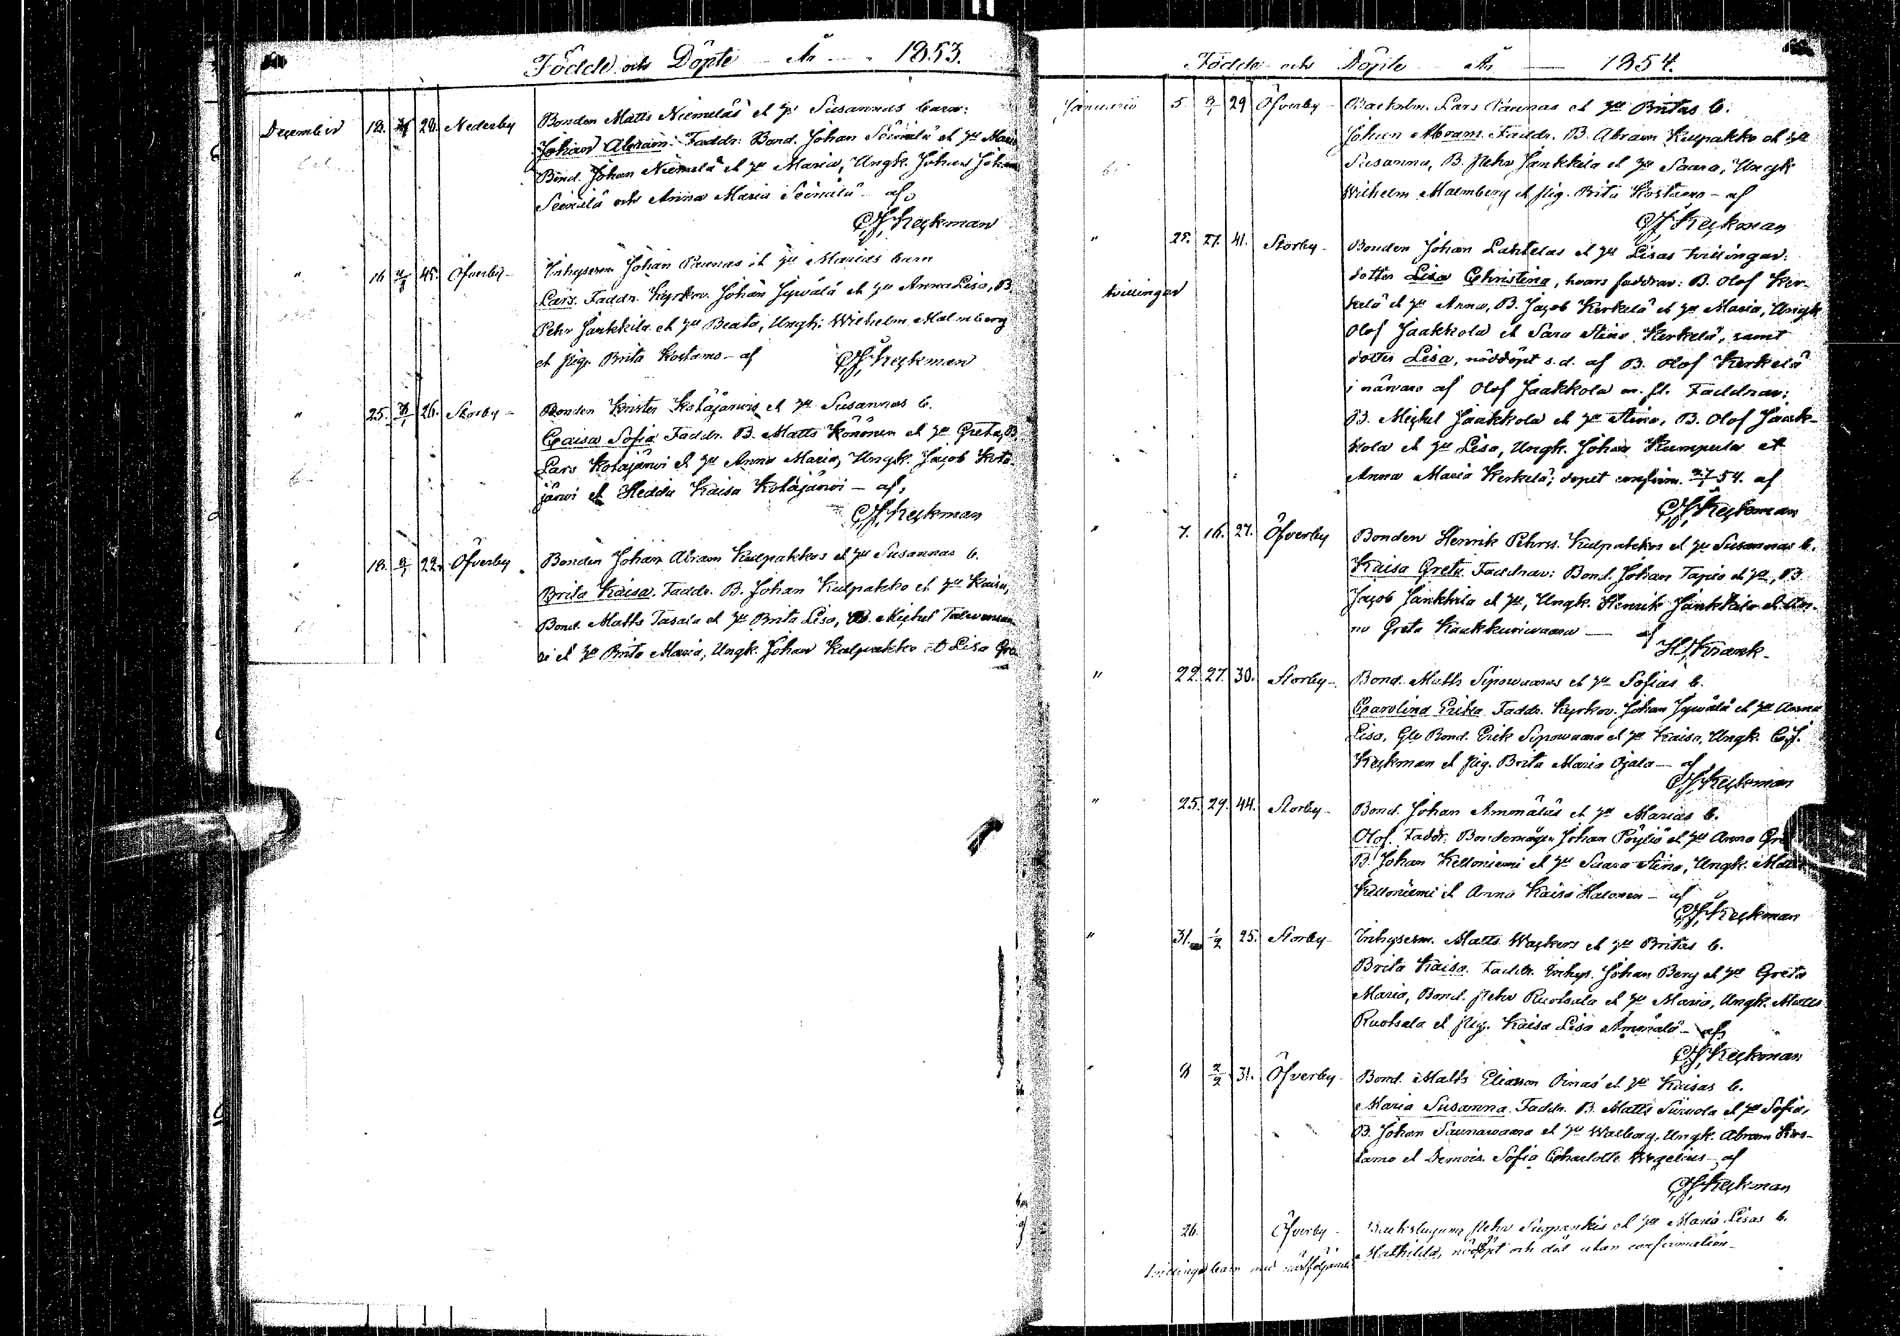 Födde och Döpte År 1853.
December 18. 28. Nederby Bonden Matts Niemeläs et ux Susannas barn:
Johan Abram. Faddr: Bond. Johan et ux Maria
Bond. Johan Niemelä et ux Maria, Ungk. Johan Johan
och Anna Maria af
Keckman
" 16 45. Öfverby Inhysesm. Johan Paunas et ux Marias barn
Lars. Faddr. Kyrkov. Johan Jywälä et ux Anna Lisa, B.
Pehr Jankkila et ux Beata, Ungk. Wilhelm Malmberg
et pig. Brita Kostamo - af Keckman
" 25. 26. Storby Bonden Krister Kotajärwis et ux Susannas b.
Caisa Sofia Faddr. B. Matts Könönen et ux Greta, B.
Lars Kotajärwi et ux Anna Maria, Ungk. Jacob Kota-
järwi et Hedda Kaisa Kotajärwi - af
Keckman
" 18. 22. Öfverby Bonden Johan Abram Kulpakkos et ux Susannas b.
Brita Kaisa. Faddr. B. Johan Kulpakko et ux Kaisa,
Bond. Matts Tasala et ux Brita Lisa, B. Michel
et ux Brita Maria, Ungk. Johan Kulpakko et Lisa Gre
Födde och Döpte År 1854.
Januarii 5. 29 Öfverby Lars Paunas et ux Britas b.
Johan Abram. Faddr. B. Abram Kulpakko et ux
Susanna, B. Pehr Jankkila et ux Saara, Ungk
Wilhelm Malmberg et pig. Brita Kostamo - af
Keckman
" 25. 27. 41. Storby Bonden Johan Lahtelas et ux Lisas tvillingar:
tvillingar dotter Lisa Christina, hvars faddrar: B. Olof Ker-
kelä et ux Anna, B. Jacob Kerkelä et ux Maria, Ungk
Olof Jaakkola et Sara Stina Kerkelä, samt
dotter Lisa, nöddöpt s.d. af B. Olof Kerkelä
i närvaro af Olof Jaakkola m. fl. Faddrar:
B. Michel Jaakkola et ux Stina, B. Olof Jaak-
kola et ux Lisa, Ungk. Johan Kumpula et
Anna Maria Kerkelä; dopet confirm. 27/1 54. af
Keckman
" 7. 16. 27. Öfverby Bonden Henrik Pehrss. Kulpakkos et ux Susannas b.
Kaisa Greta. Faddrar: Bond. Johan Tapio et ux, B.
Jacob Jankkila et ux, Ungk. Henrik Jankkila et An-
na Greta af
H. Krank.
" 22. 27. 30. Storby Bond. Matts Sipowaaras et ux Sofias b.
Carolina Erika. Faddr. Kyrkov. Johan Jywälä et ux Anna
Lisa, Gle Bond. Erik Sipowaara et ux Kaisa, Ungk. C.J.
Keckman et pig. Brita Maria Ojala - af
Keckman
" 25. 29. 44. Storby Bond. Johan Ämmäläs et ux Marias b.
Olof. Faddr. Johan Pöyliö et ux Anna Gre
B. Johan Kelloniemi et ux Saara Stina, Ungk. Matts
Kelloniemi et Anna Kaisa Halonen - af
Keckman
" 31. 1/2 25. Storby Inhysesm. Matts Wäckers et ux Britas b.
Brita Kaisa. Faddr. Inhys. Johan Berg et ux Greta
Maria, Bond. Pehr Ruotsala et ux Maria, Ungk. Matts
Ruotsala et pig. Kaisa Lisa Ämmälä - af
Keckman
" 8 2/2 31. Öfverby Bond. Matts Eliasson Oinas et ux Kaisas b.
Maria Susanna. Faddr. B. Matts et ux Sofia,
B. Johan Saunawaara et ux Walborg, Ungk. Abram Kos-
tamo et Demois. Sofia Charlotta Wegelius - af
Keckman
26. Öfverby Pehr et ux Maria Lisas b.
Mathilda, nöddöpt och död utan confirmation.